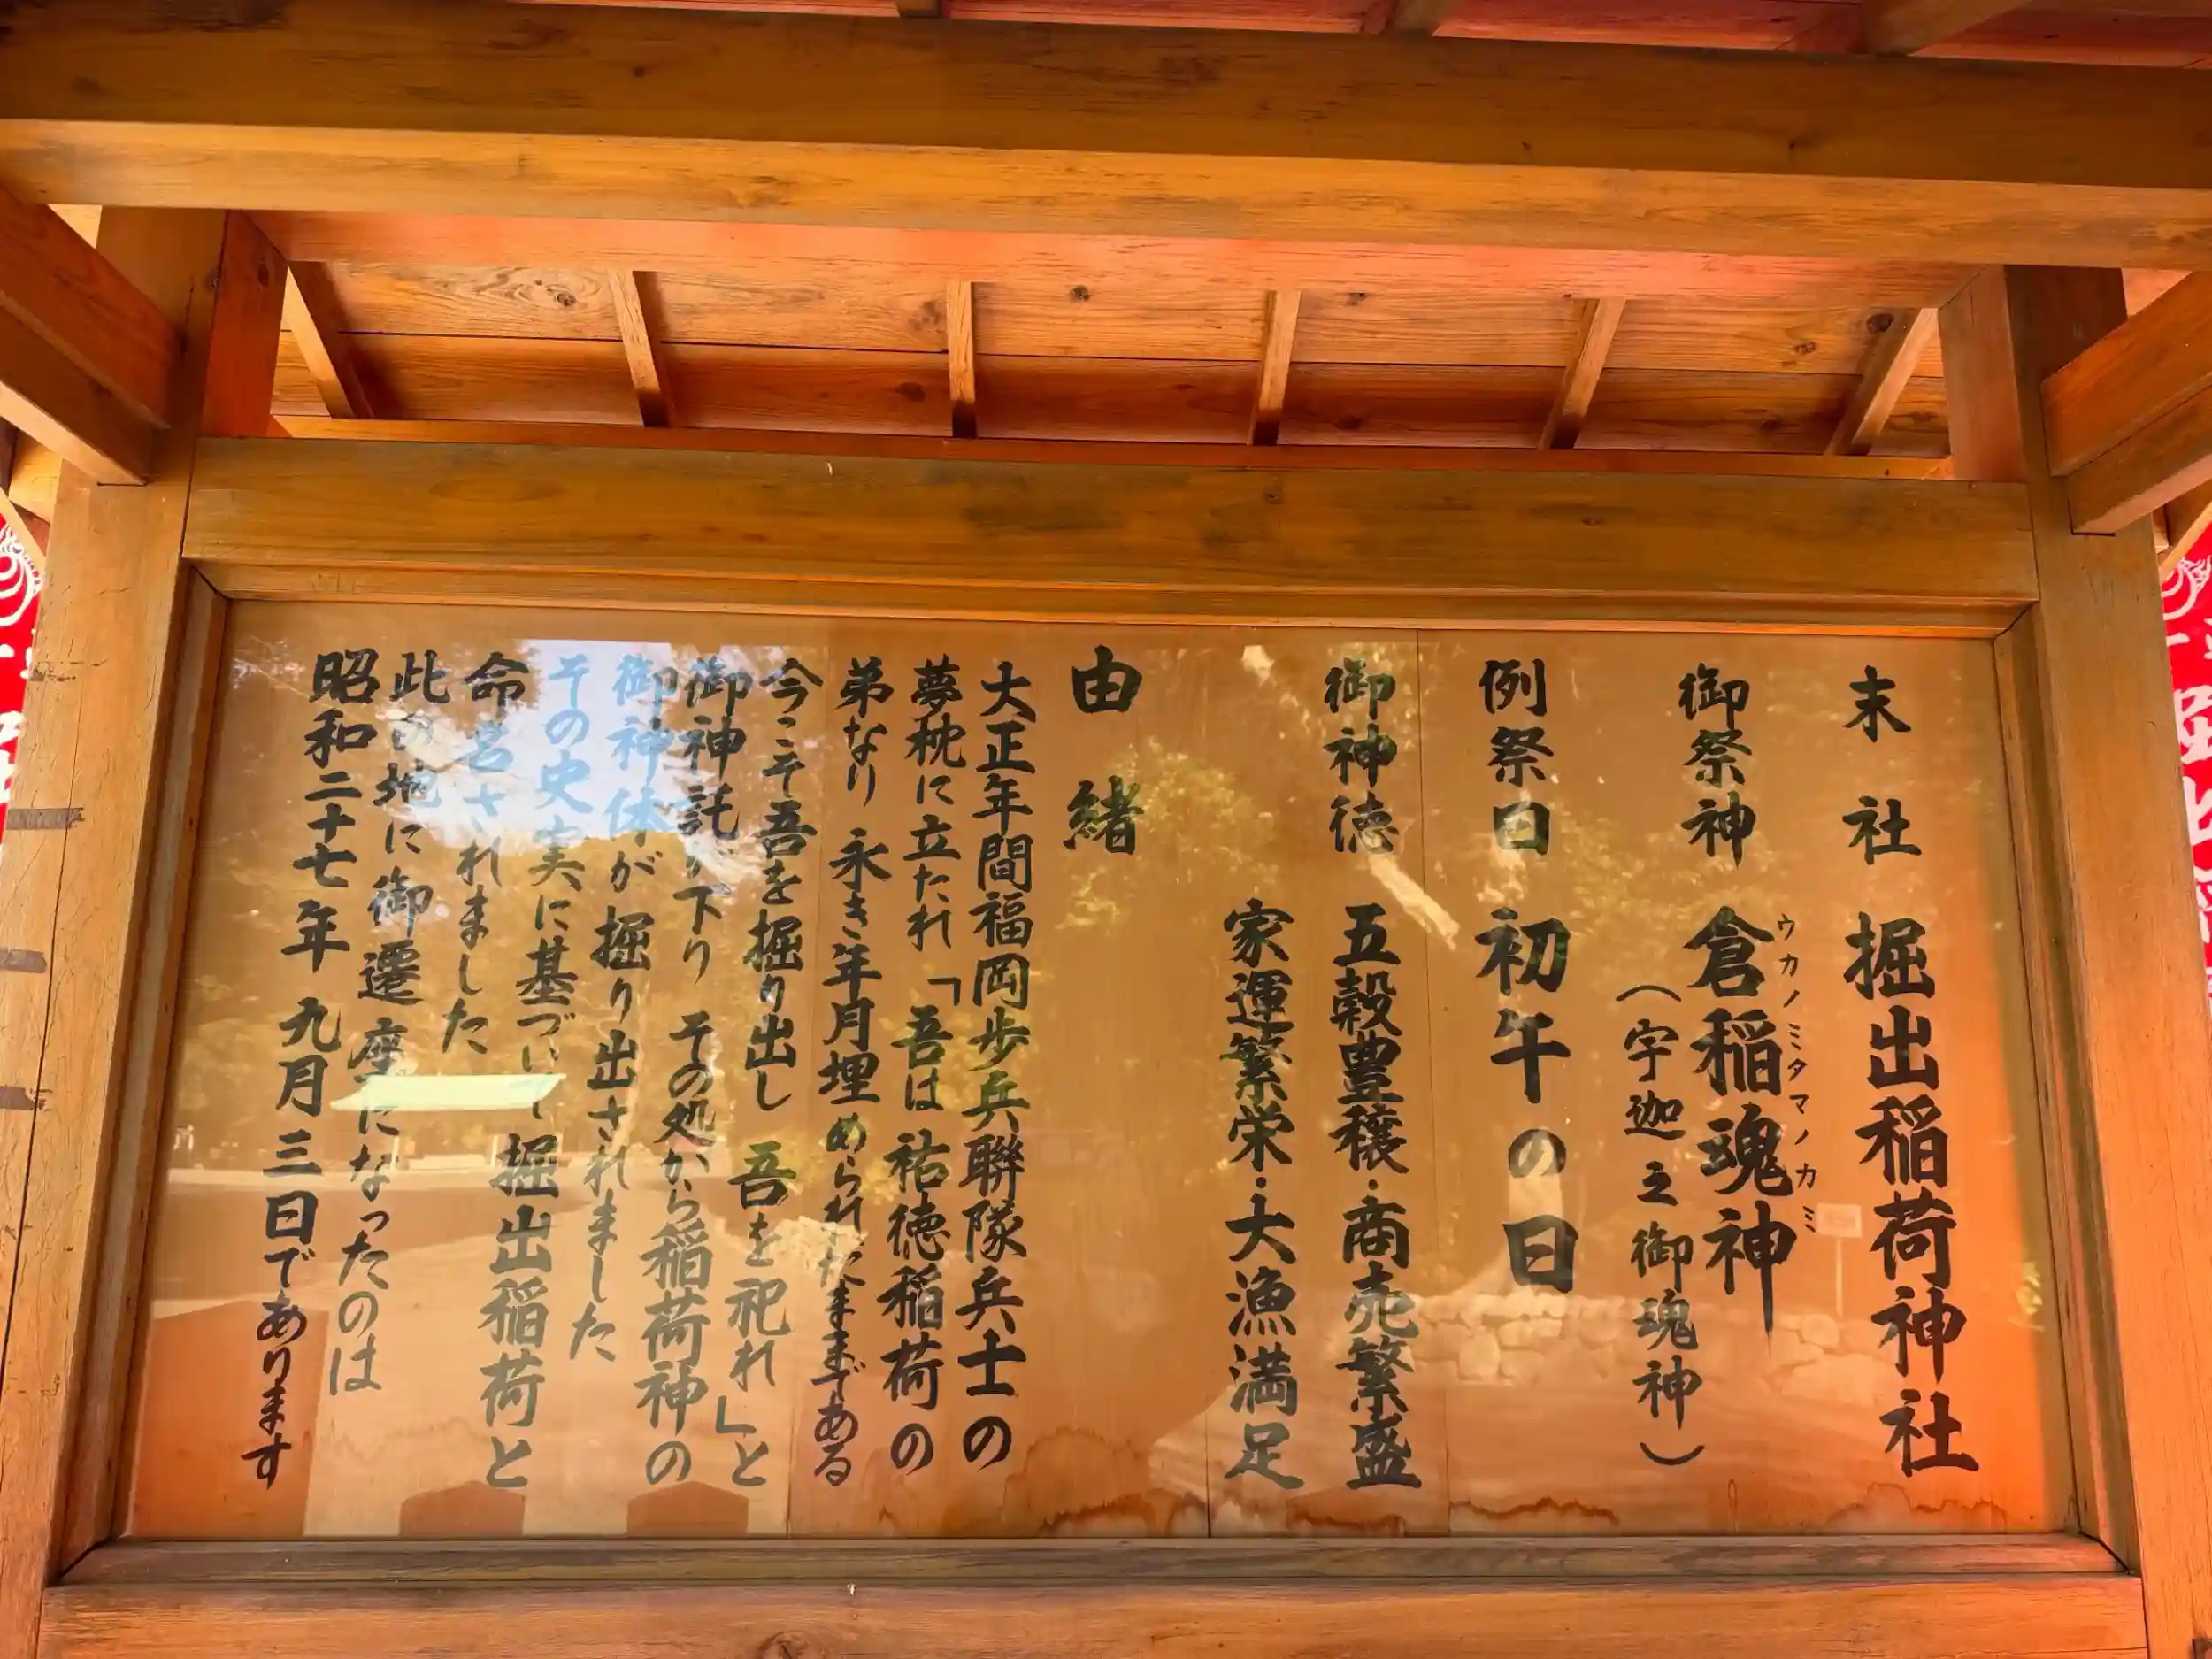 末社 掘出稲荷神社
御祭神 倉稲魂神
ウカノミタマノカミ
(宇迦之御魂神)
例祭日 初午の日
御神徳 五穀豊穣・商売繁盛
家運繁栄・大漁満足
由緒
大正年間福岡歩兵聯隊兵士の
夢枕に立たれ「吾は祐徳稲荷の
弟なり 永き年月埋められたままである
今こそ吾を掘り出し 吾を祀れ」と
御神託が下り その処から稲荷神の
御神体が掘り出されました
その史実に基づいて掘出稲荷と
命名されました
此の地に御遷座になったのは
昭和二十七年 九月三日であります